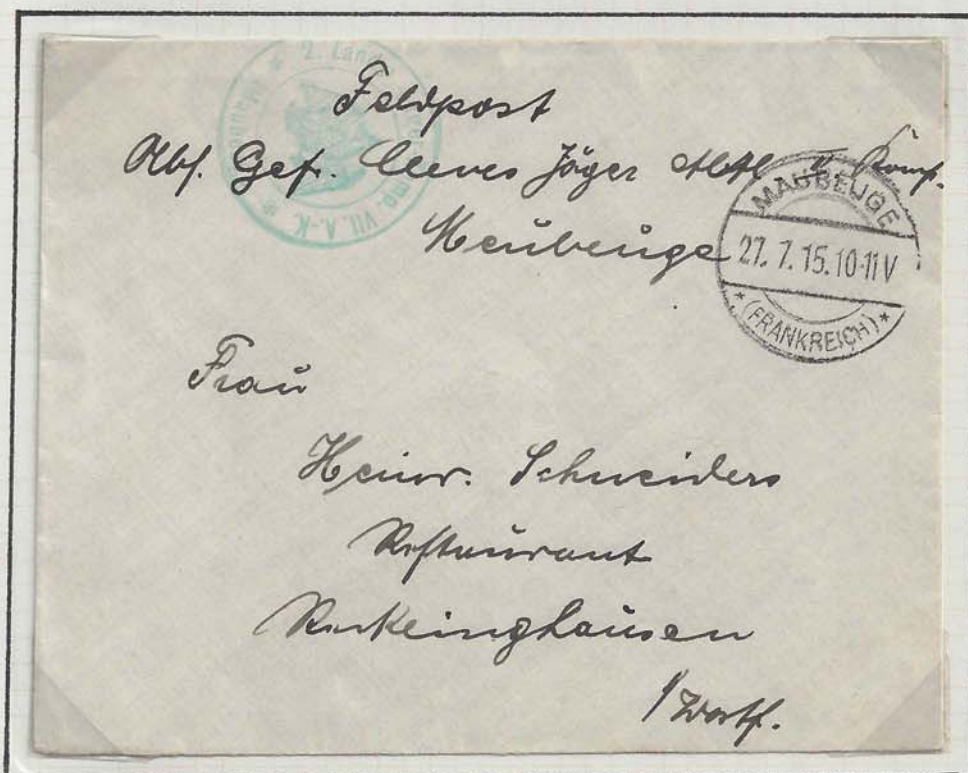 Feldpost
Abs. Gef. Cleves Jäger Abtl. II. Komp.
Maubeuge
MAUBEUGE
27. 7. 15. 10-11 V
* (FRANKREICH) *
VII. A.-K.
Frau
Heinr. Schneiders
Restaurant
Recklinghausen
i/Westf.